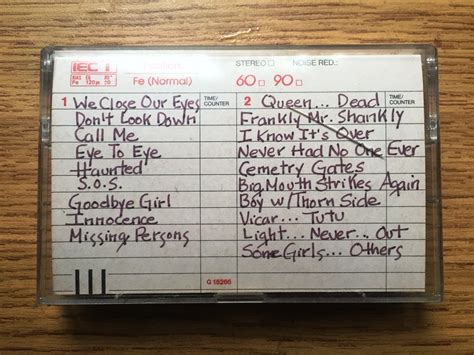 IEC I
STEREO NOISE RED.:
Fe (Normal)
60 90
1 We Close Our Eyes
TIME/
COUNTER
Don't Look Down
Call Me
Eye To Eye
Haunted
S.O.S.
Goodbye Girl
Innocence
Missing Persons
2 Queen... Dead
TIME/
COUNTER
Frankly Mr. Shankly
I Know It's Over
Never Had No One Ever
Cemetry Gates
Big Mouth Strikes Again
Boy w/Thorn Side
Vicar... Tutu
Light... Never... Out
Some Girls... Others
G 15205